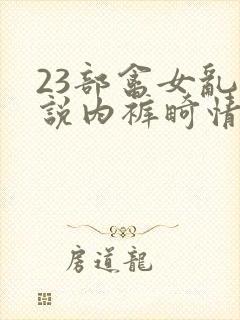 23部畲女亂
說内裤畸情
房道龍